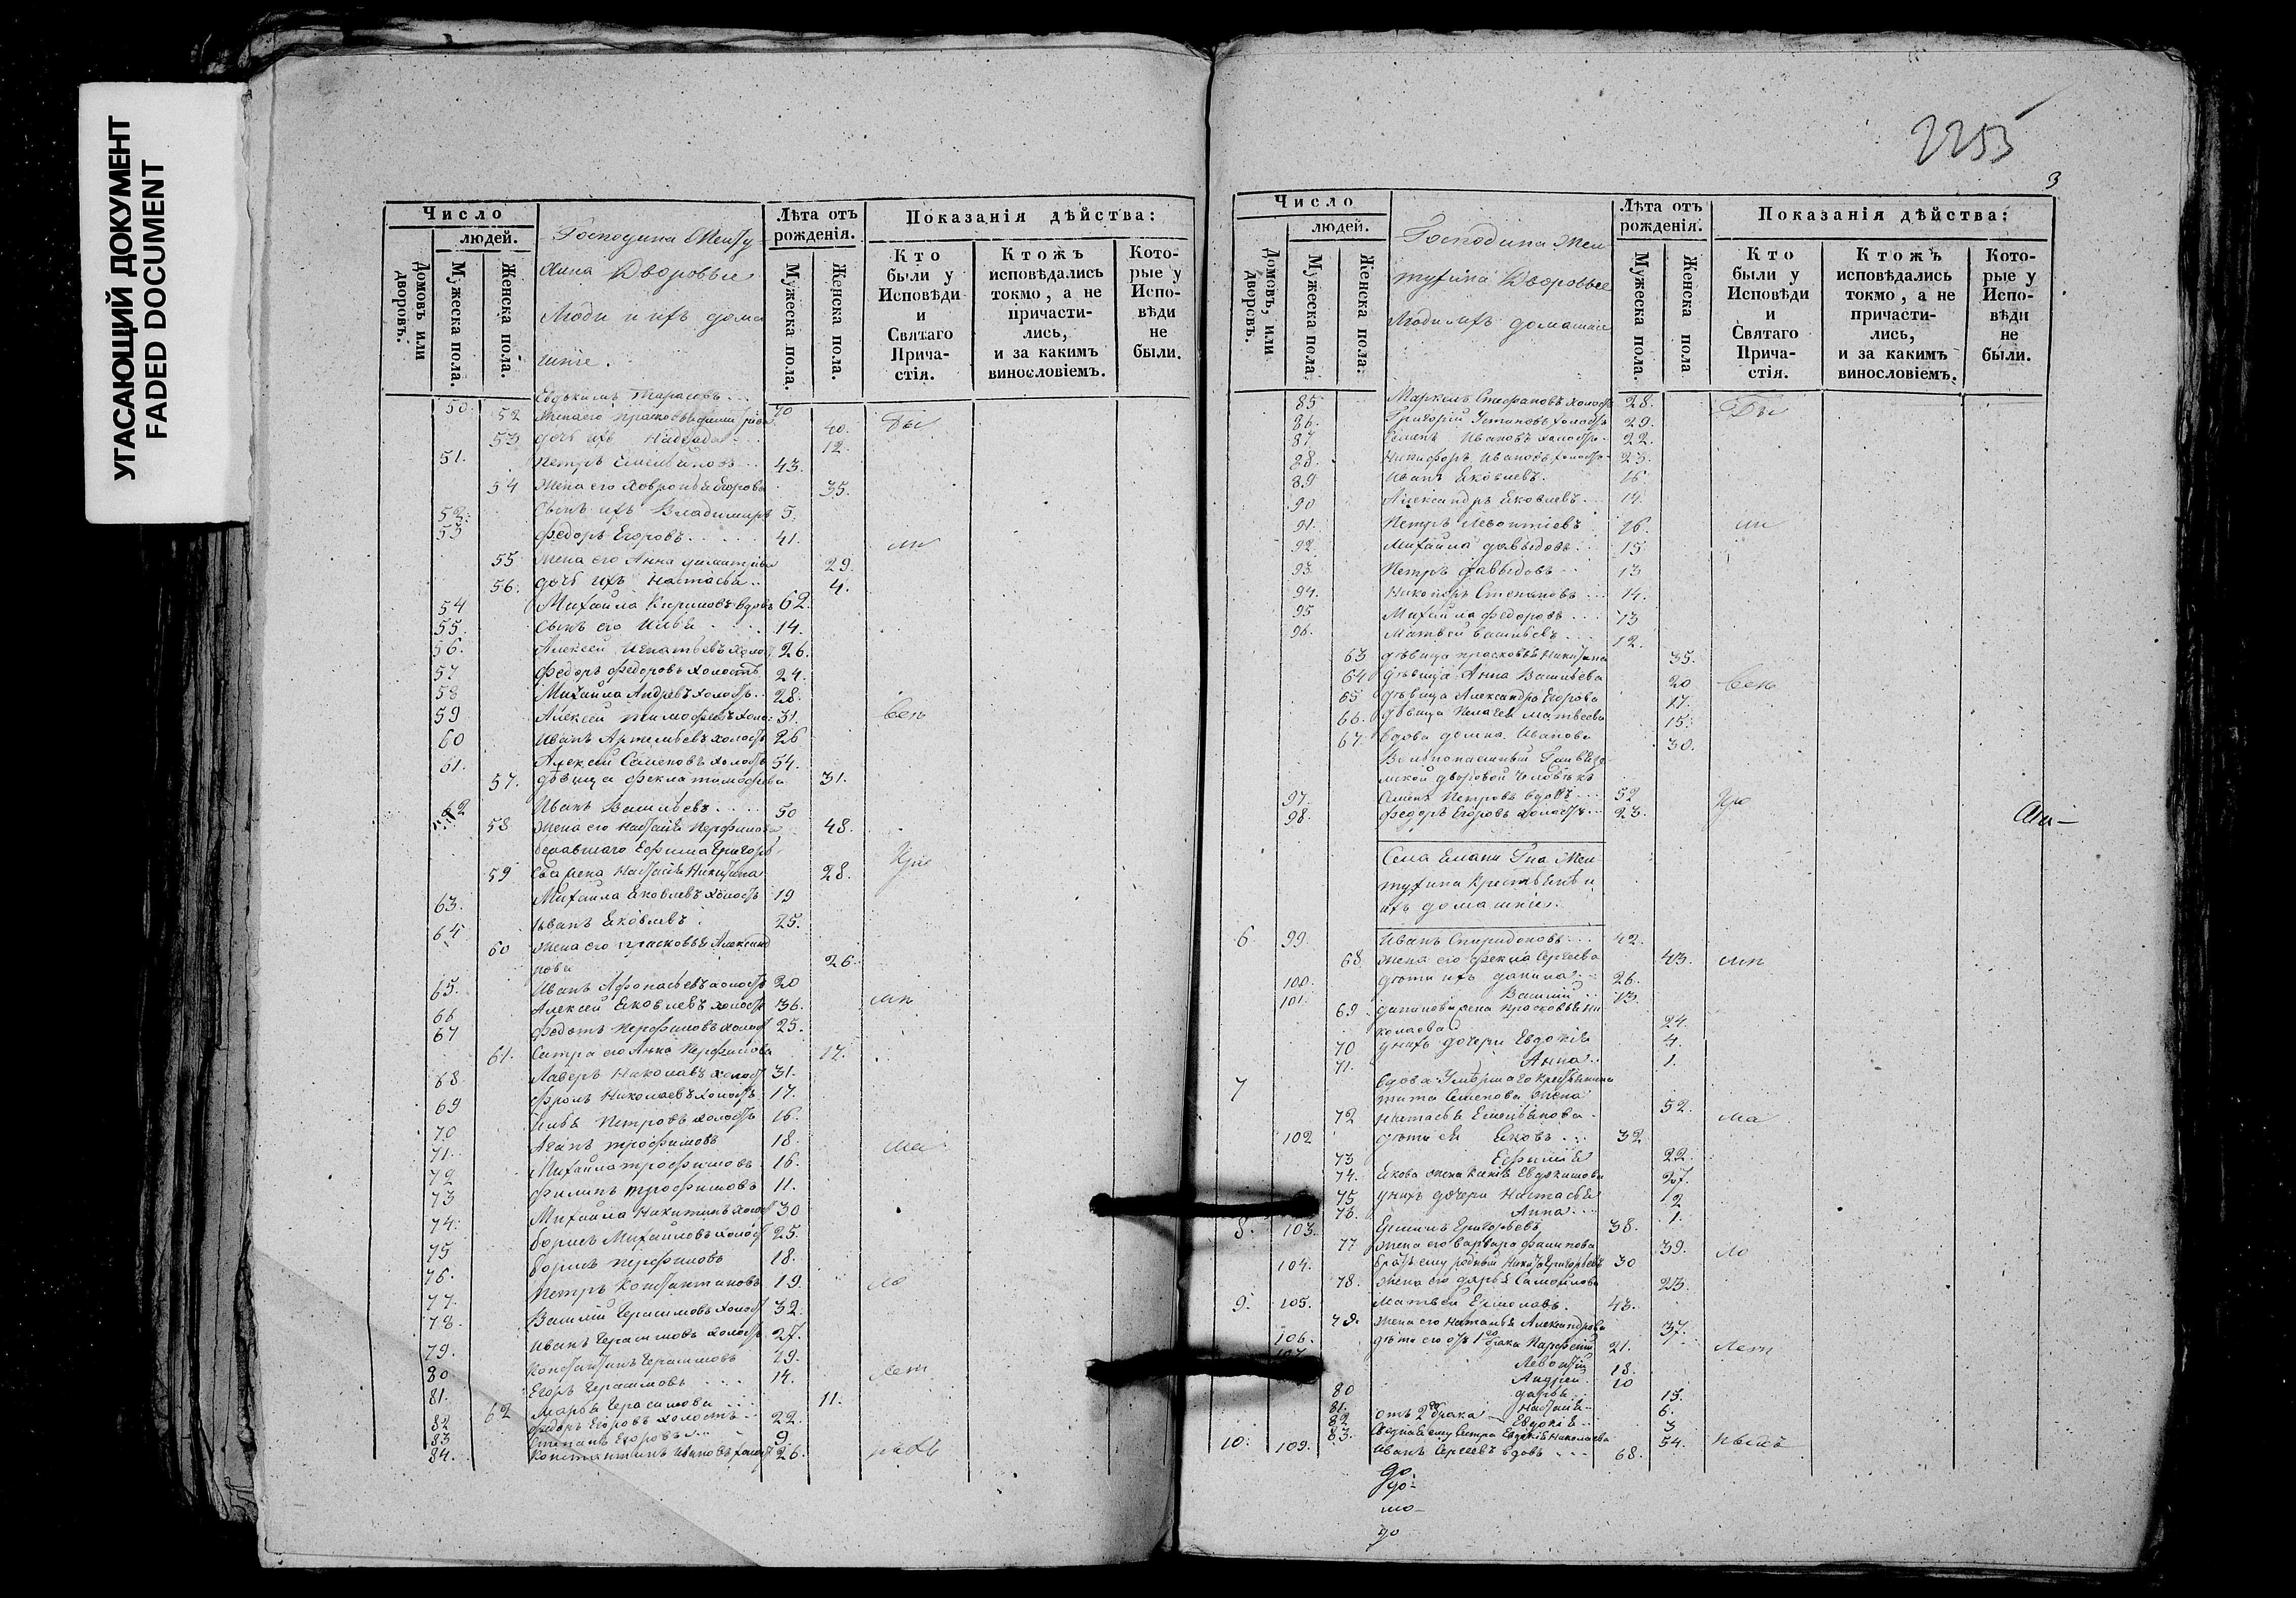 УГАСАЮЩИЙ ДОКУМЕНТ
FADED DOCUMENT
Число
людей.
Домовъ или дворовъ.
Мужеска пола.
Женска пола.
Господина Менту
хина Дворовые
Люди и ихъ дома
шніе.
Лѣта отъ рожденія.
Мужеска пола.
Женска пола.
Показанія дѣйства:
Кто были у Исповѣди и Святаго Прича-стія.
Ктожъ исповѣдались токмо, а не причасти-лись, и за какимъ винословіемъ.
Кото-рые у Испо-вѣди не были.
50. Евдокимъ Тарасовъ 40
52 жена его Прасковья 40. Бы
53 дочь ихъ Надежда 12.
51. Петръ Емельяновъ 43.
54 жена его Хавронья Егорова 35.
52. сынъ ихъ Владимиръ 5.
53 Федоръ Егоровъ 41. ли
55 жена его Анна 29.
56. дочь ихъ Настасья 4.
54 Михайла Кириловъ вдовъ 62.
55. сынъ его Илья 14.
56. Алексей Игнатьевъ холост 26.
57 Федоръ Федоровъ холостъ 24.
58 Михайла Андревъ холостъ 28.
59 Алексей Тимофеевъ холос: 31. Всп
60 Иванъ Артемьевъ холостъ 26
61. Алексей Семеновъ холостъ 54.
57. девица Фекла Тимофеева 31.
62 Иванъ Васильевъ 50
58 жена его Настасья Перфилова 48.
бежавшаго Ефима Григорь
59 ева жена Настасья Никитина 28. При
63. Михаила Яковлевъ холостъ 19
64 Иванъ Яковлевъ 25.
60 жена его Прасковья Александ
рова 26.
65. Иванъ Афонасьевъ холостъ 20
66 Алексей Яковлевъ холостъ 36. ли
67 Федотъ Перфиловъ холост 25.
61. Сестра его Анна Перфилова 17.
68 Лаверъ Николаевъ холост 31.
69 Фролъ Николаевъ холостъ 17.
70 Илья Петровъ холостъ 16.
71. Агапъ Трофимовъ 18. ша
72 Михайла Трофимовъ 16.
73 Филипъ Трофимовъ 11.
74. Михайла Никитинъ холост 30
75 Борисъ Михайловъ холост 25.
76. Борисъ Перфиловъ 18.
77. Петръ Константиновъ 19. ло
78. Василий Герасимовъ холост 32.
79. Иванъ Герасимовъ холостъ 27.
80 Константинъ Герасимовъ 19.
81. Егоръ Герасимовъ 14.
62 Марья Герасимова 11.
82 Федоръ Егоровъ холостъ 22.
83 Степанъ Егоровъ 9
84. Константинъ Ивановъ холост 26.
2255
3
Число
людей.
Домовъ, или дворовъ.
Мужеска пола
Женска пола.
Господина Мен
тухина Дворовые
Люди и ихъ домашніе
Лѣта отъ рожденія.
Мужеска пола.
Женска пола
Показанія дѣйства:
Кто были у Исповѣди и Святаго Прича-стія.
Ктожъ исповѣдались токмо, а не причасти-лись, и за какимъ винословіемъ.
Кото-рые у Испо-вѣди не были.
85 Маркелъ Стефановъ холостъ 28. Бы
86. Григорій Устиновъ холостъ 29.
87 Семенъ Ивановъ холостъ 22.
88. Никифоръ Ивановъ холостъ 23.
89 Иванъ Яковлевъ 16
90 Александръ Яковлевъ 14.
91. Петръ Левонтіевъ 16 ли
92. Михайла Давыдовъ 15
93 Петръ Давыдовъ 13
94. Никаноръ Степановъ 14.
95 Михайла Федоровъ 13
96. Матвей Васильевъ 12.
63 девица Прасковья Никитина 35.
64 девица Анна Васильева 20
65 девица Александра Егорова 17.
66. девица Пелагея Матвеева 15.
67. вдова Домна Иванова 30.
дворовой человекъ
97. Семенъ Петровъ вдовъ 52 При
98. Федоръ Егоровъ холостъ 23.
Села Елани Гна Мен
тухина Крестьяне и
ихъ домашніе.
6 99. Иванъ Спиридоновъ 42.
68 жена его Фекла Сергеева 43.
100. дети ихъ Данила 26.
101. Василий 13.
69. Данилова жена Прасковья Ни
колаева 24.
70 у нихъ дочери Евдокія 4.
71. Анна 1.
7 вдова умершаго крестьянина
Тита Семенова жена
72 Настасья Емельянова 52. ша
102 дети ея Яковъ 32
73 Ефимія 22.
74. Якова жена Евдокимова 27.
75 у нихъ дочери Настасья 12
76. Анна 1.
8. 103. Ермилъ Григорьевъ 38.
77 жена его Варвара Филипова 39. ло
104. братъ ему родный Никита Григорьевъ 30
78. жена его Дарья Самойлова 23.
9. 105. Матвей Ермолаевъ 43.
79. жена его Наталья Александрова 37.
106. дети его отъ 1го брака Парфений 21.
Левонтій 18.
Андрей 10
80 Дарья 13.
81. Настасья 6.
82 отъ 2го брака Евдокія 3
83. Сестра Евдокія Николаева 54.
10. 109. Иванъ Сергеевъ вдовъ 68.
до